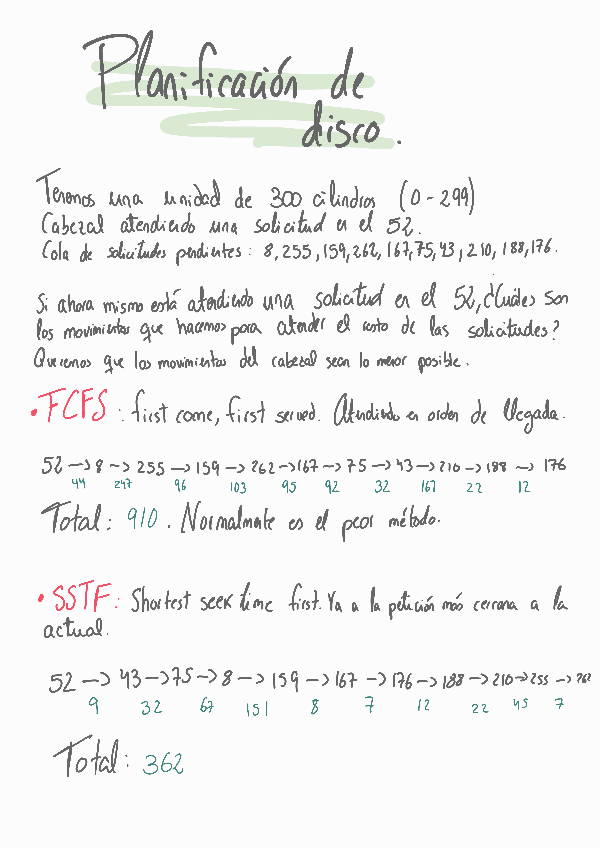 Planificación de
disco.
Tenemos una unidad de 300 cilindros (0-299)
Cabezal atendiendo una solicitud en el 52.
Cola de solicitudes pendientes: 8, 255, 159, 262, 167, 75, 43, 210, 188, 176.
Si ahora mismo está atendiendo una solicitud en el 52, ¿Cuáles son
los movimientos que hacemos para atender el resto de las solicitudes?
Queremos que los movimientos del cabezal sean lo menor posible.
• FCFS: first come, first served. Atendiendo en orden de llegada.
52 -> 8 -> 255 -> 159 -> 262 -> 167 -> 75 -> 43 -> 210 -> 188 -> 176
44 247 96 103 95 92 32 167 22 12
Total: 910. Normalmente es el peor método.
• SSTF: Shortest seek time first. Va a la petición más cercana a la
actual.
52 -> 43 -> 75 -> 8 -> 159 -> 167 -> 176 -> 188 -> 210 -> 255 -> 262
9 32 67 151 8 7 12 22 45 7
Total: 362